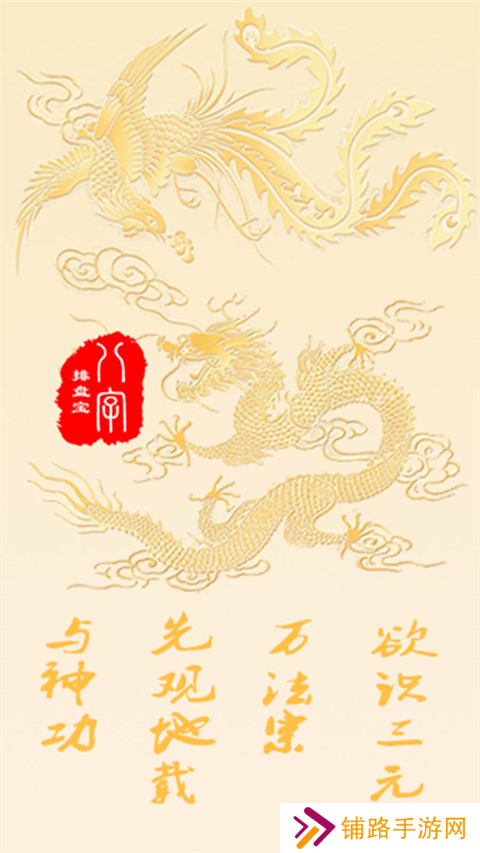 八字
排盘宝
欲识三元
万法宗
先观地载
与神功
铺路手游网